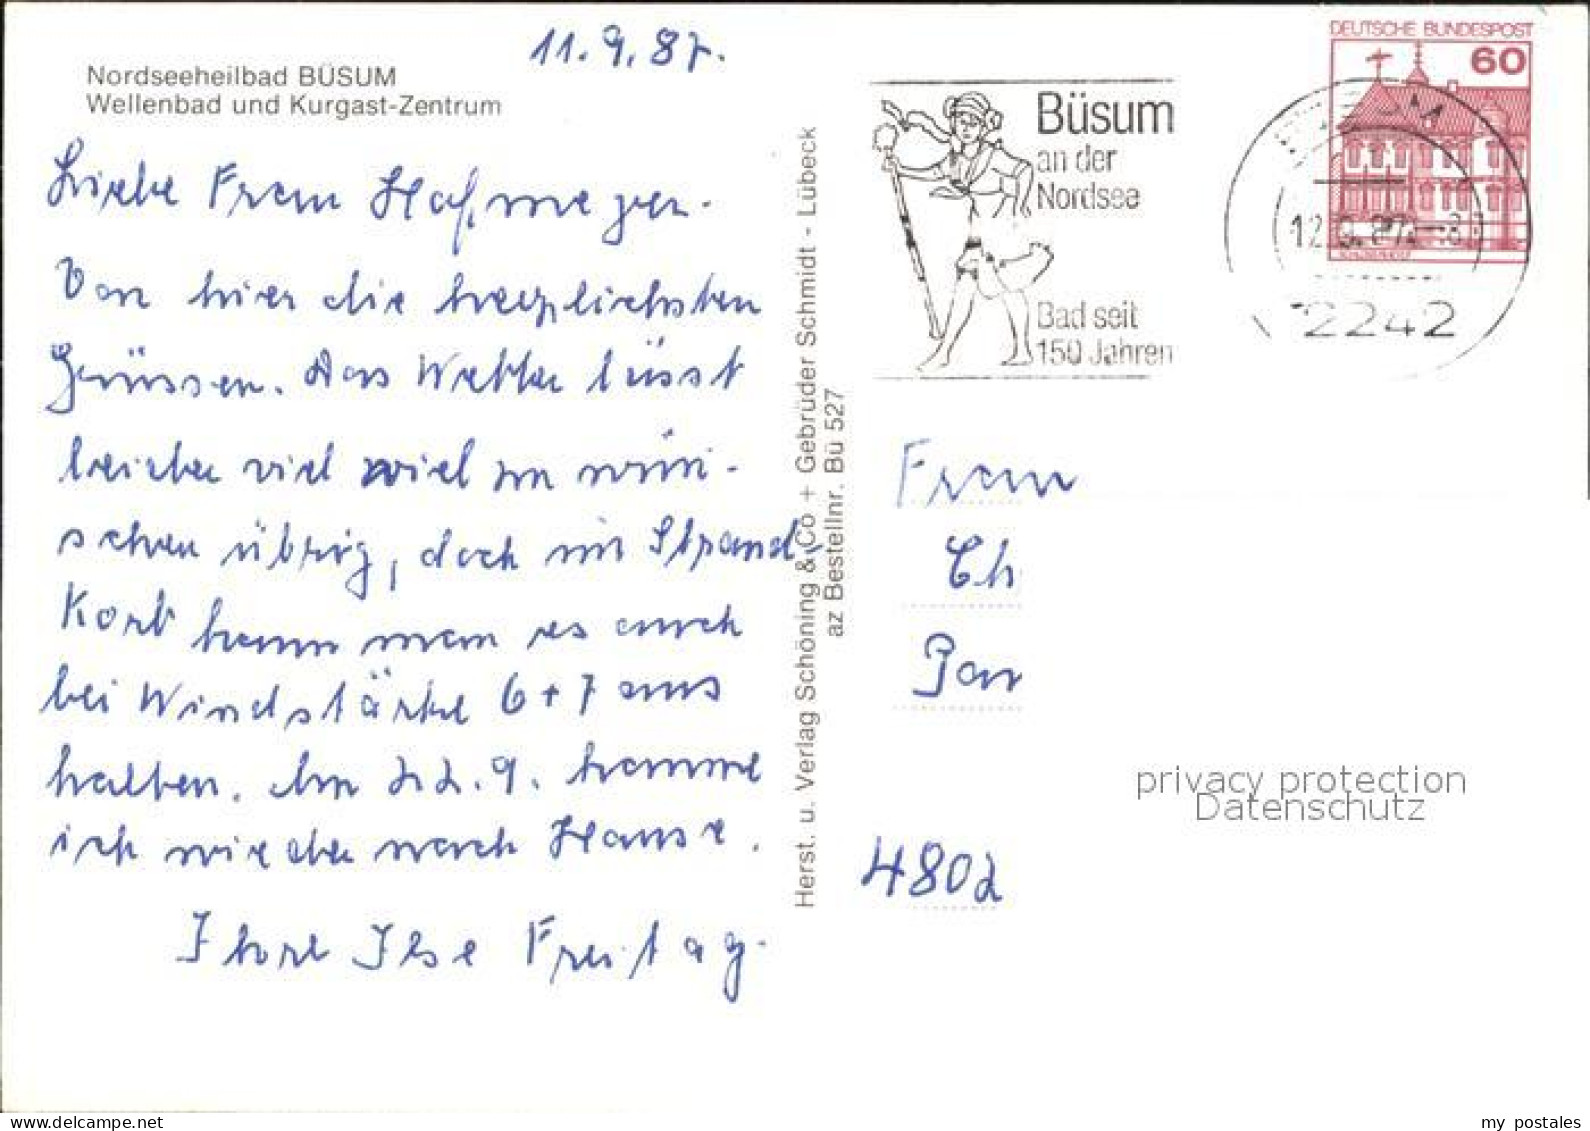 11.9.87.
Nordseeheilbad BÜSUM
Wellenbad und Kurgast-Zentrum
Liebe Frau Hofmeyer.
Von hier die herzlichsten
Grüssen. Das Wetter lässt
leider viel viel zu wün-
schen übrig, doch im Strand-
Korb kann man es auch
bei Windstärke 6+7 aus
halten. Am 22.9. komme
ich wieder nach Hause.
Ihre Ilse Freitag.
Herst. u. Verlag Schöning & Co + Gebrüder Schmidt - Lübeck
az Bestellnr. Bü 527
Büsum
an der
Nordsee
Bad seit
150 Jahren
DEUTSCHE BUNDESPOST
60
12.9.87
2242
Frau
Ch
4802
privacy protection
Datenschutz
my postales